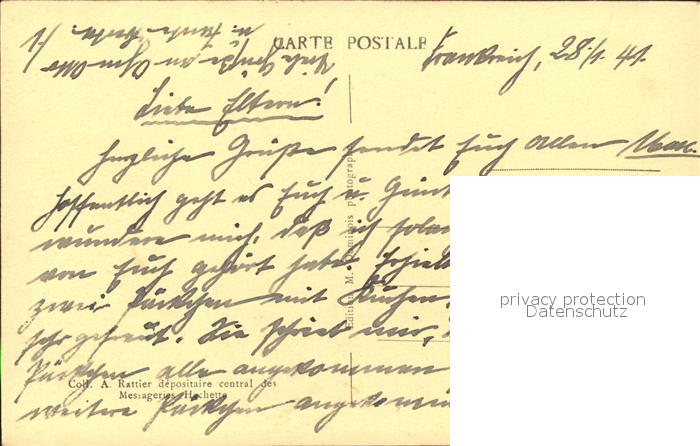 CARTE POSTALE
Frankreich, 28./1. 41.
1/ Viele Grüße an Ohm Otto
u. Tante
Liebe Eltern!
herzliche Grüße sendet Euch allen
Hoffentlich geht es Euch u.
wundere mich, daß ich
von Euch gehört habe.
zwei Päckchen mit Kuchen,
sehr gefreut. Sie schrieb mir,
Päckchen alle angekommen
weitere Päckchen
Coll. A. Rattier dépositaire central des
Messageries Hachette
privacy protection
Datenschutz